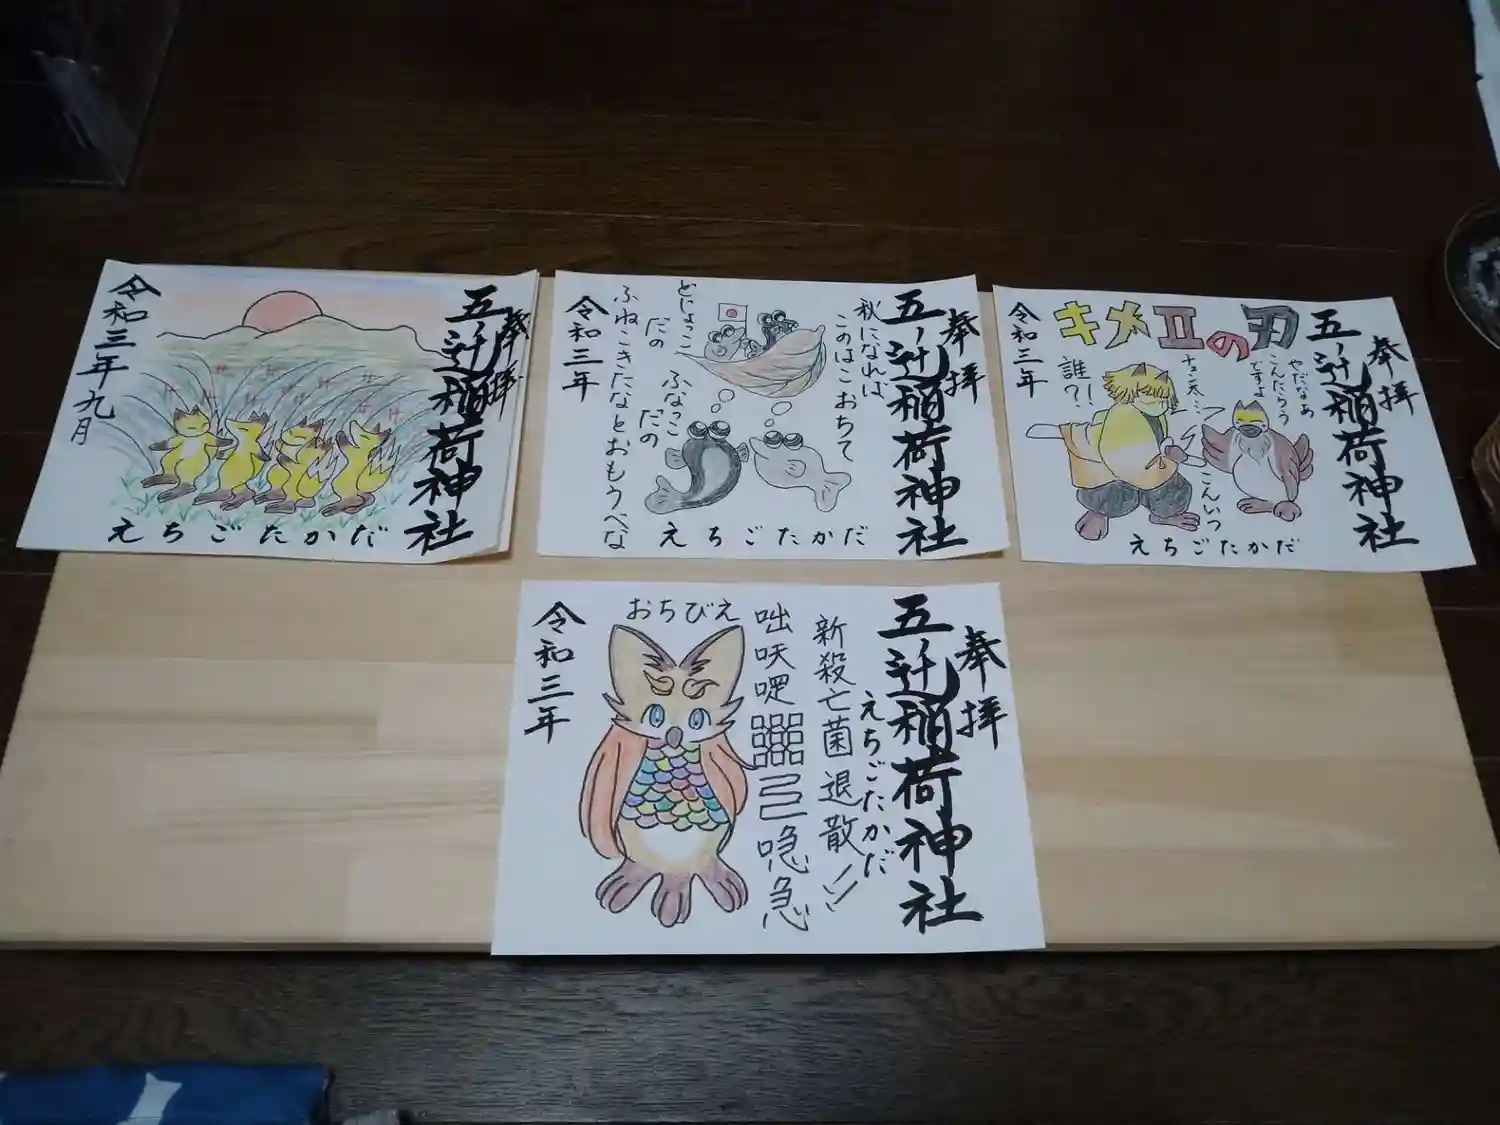 奉拝
五ノ辻稲荷神社
令和三年九月
えちごたかだ
奉拝
五ノ辻稲荷神社
秋になれば
このはこおちて
どじょっこ
だの
ふなっこ
だの
ふねこきたなとおもうべな
令和三年
えちごたかだ
奉拝
五ノ辻稲荷神社
キメエの刃
やだなあ
こんだらう
ですよ
チュン太…
誰?!
こんいつ
令和三年
えちごたかだ
奉拝
五ノ辻稲荷神社
えちごたかだ
新殺亡菌退散!!
咄吠㗫
唸急
おちびえ
令和三年